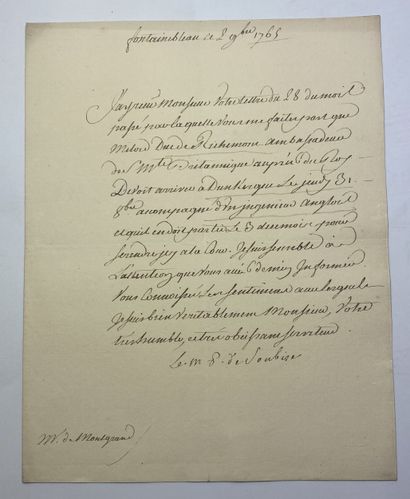 fontainebleau ce 2 9bre 1765
J'ay reçu Monsieur votre lettre du 28 du mois
passé par laquelle vous me faites part que
Milord Duc de Richemont ambassadeur
de S. Mté Britannique auprès du Roy
Devoit arriver a Dunkerque le jeudy 31
8bre acompagné d'un ingenieur anglois
et qu'il en doit partir le 3 de ce mois pour
se rendre icy a la Cour. Je suis sensible à
l'attention que vous avés de m'en informer
vous connoissés les sentimens avec lesquels
Je suis bien veritablement Monsieur, Votre
tres humble, et tres obeissant serviteur.
Le M. P. de Soubise
Mr. de Montgrand